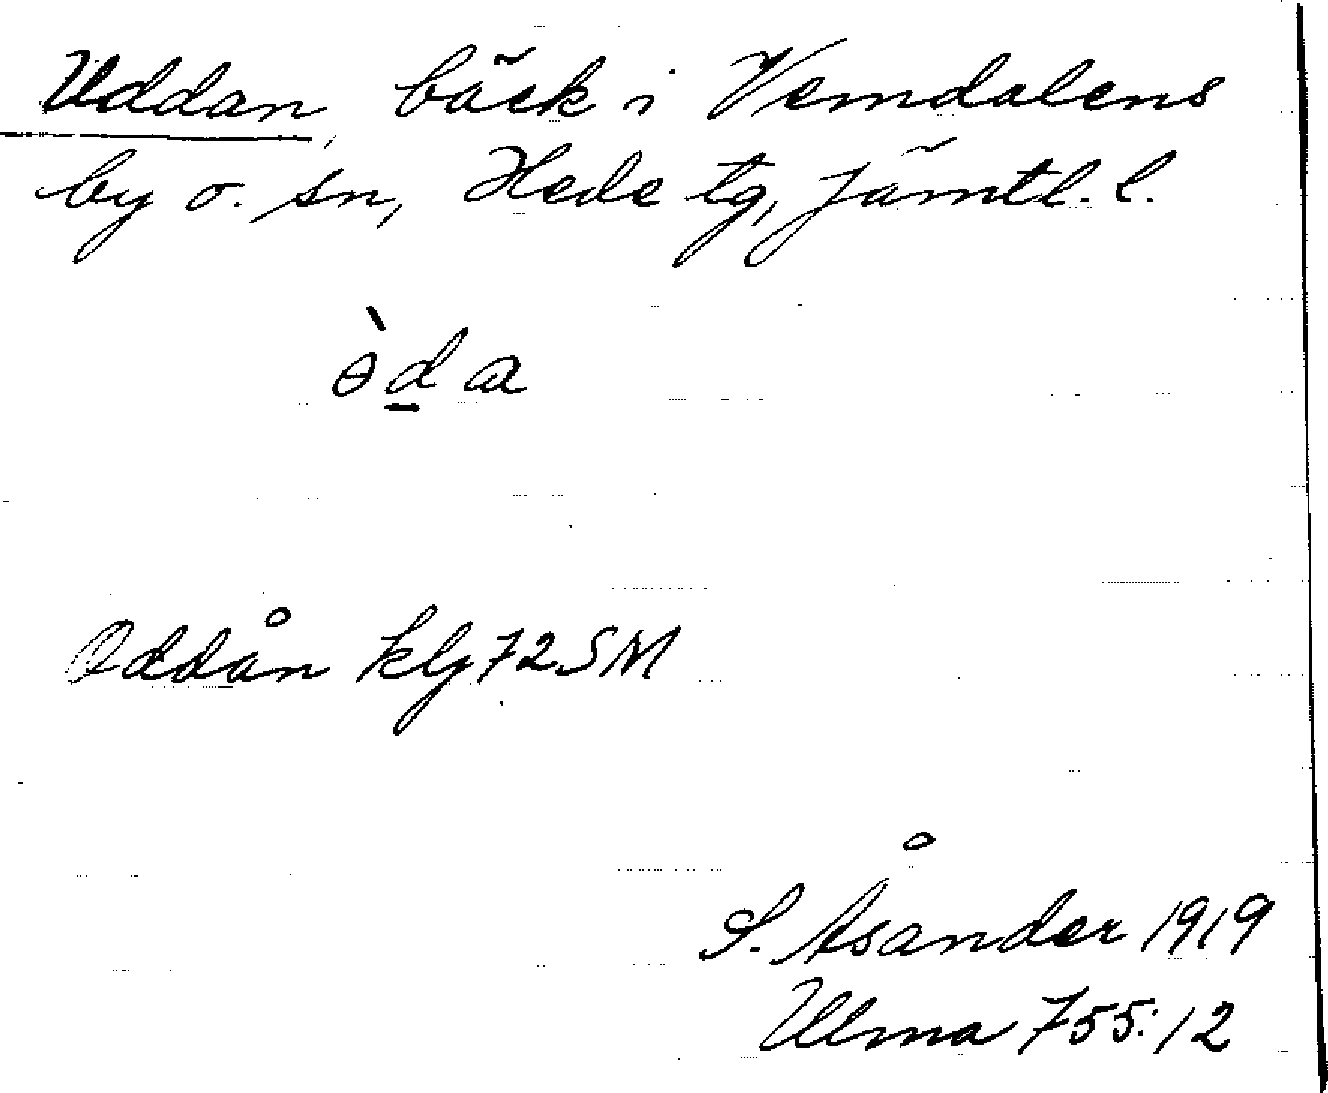 Uddan, bäck i Vemdalens
by o. sn, Hede tg, Jämtl. l.
ɵ̀d̲a
Oddån klj 72 SM
S. Åsander 1919
Ulma 755:12